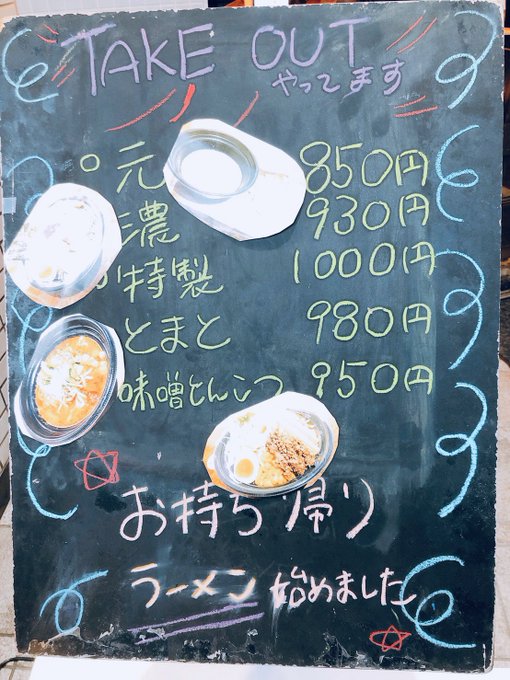 TAKE OUT
やってます
○ 元 850円
濃 930円
○ 特製 1000円
とまと 980円
味噌とんこつ 950円
お持ち帰り
ラーメン 始めました